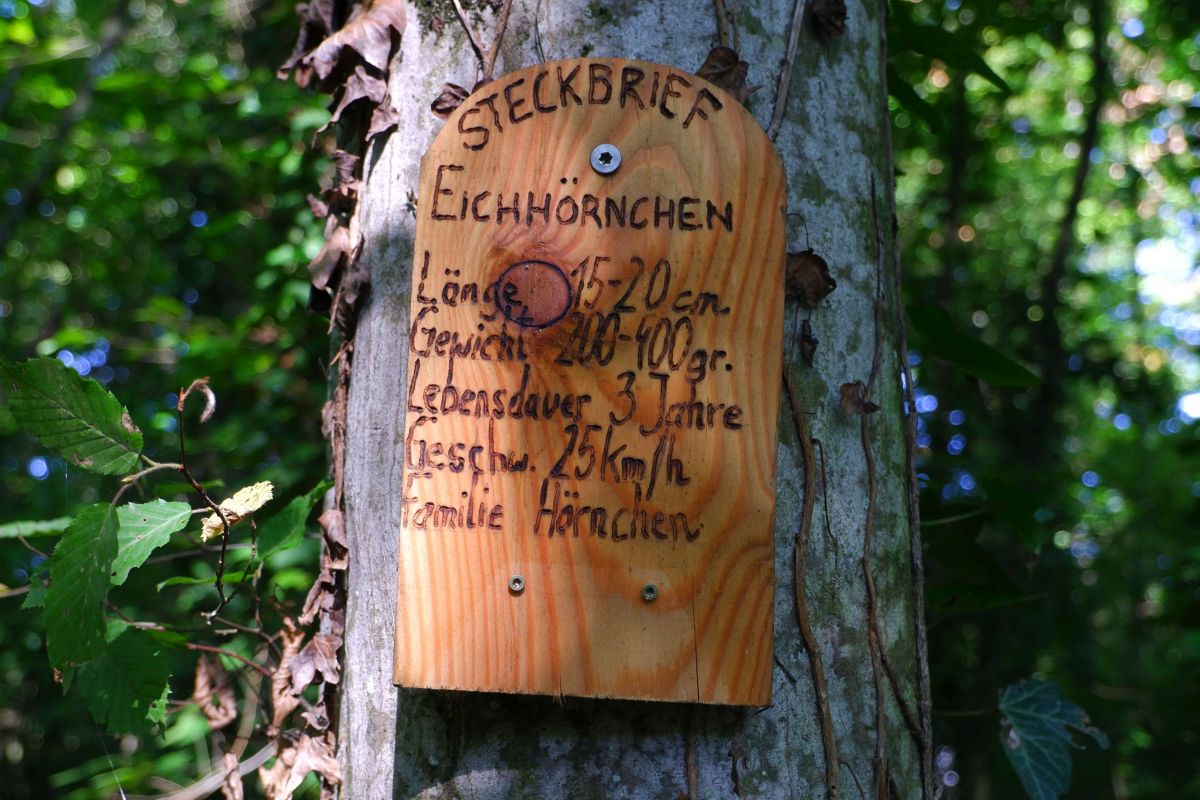 STECKBRIEF
EICHHÖRNCHEN
Länge 15-20 cm.
Gewicht 200-400 gr.
Lebensdauer 3 Jahre
Geschw. 25 Km/h
Familie Hörnchen